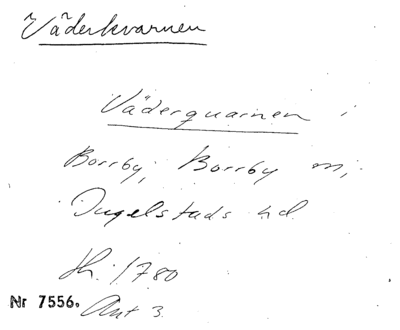 Väderkvarnen
Väderquarnen i
Borrby, Borrby sn,
Ingelstads hd
Ant 3.
Nr 7556.